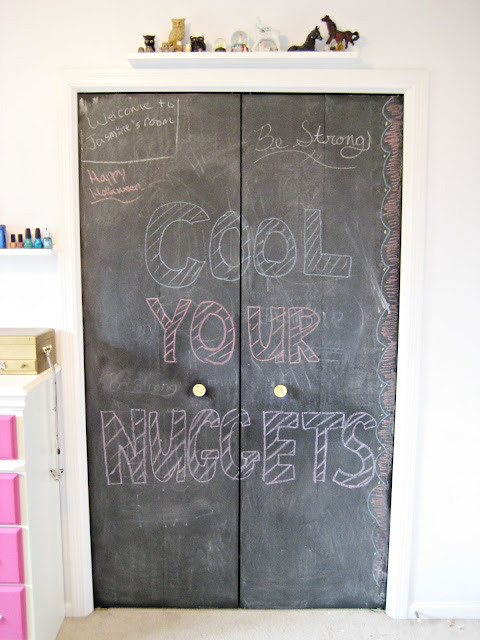 Welcome to
Jasmine's room
Be Strong
Happy
Hollawoon
COOL
YOUR
NUGGETS